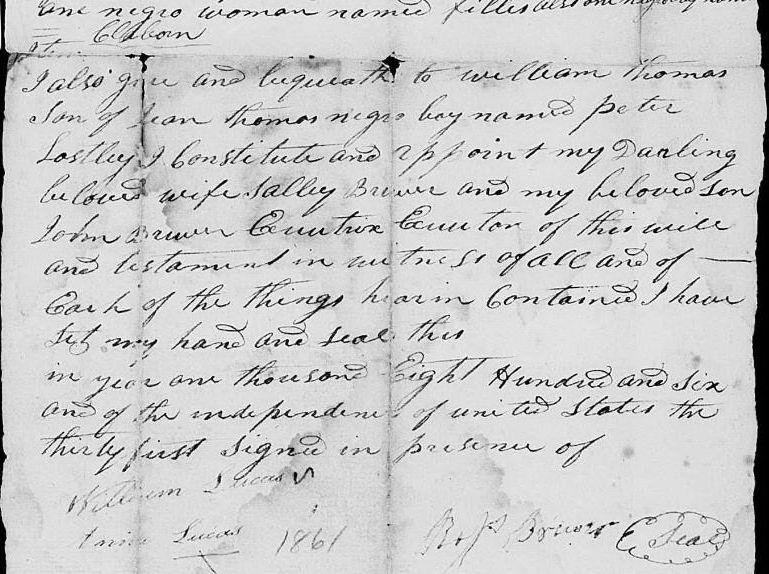 one negro woman named fillis also one negro boy named
Claborn
Item
I also give and bequeath to william thomas
Son of Jean thomas negro boy named peter
Lastley I Constitute and appoint my Darling
beloved wife Salley Bruer and my beloved son
John Bruer Executrix Executor of this will
and testament in witness of all and of —
Each of the things hearin Contained I have
set my hand and seal this
in year one thousand Eight Hundred and six
and of the independence of united States the
thirty first Signed in presence of
William Lucas
Lucas 1861 Bruer Seal